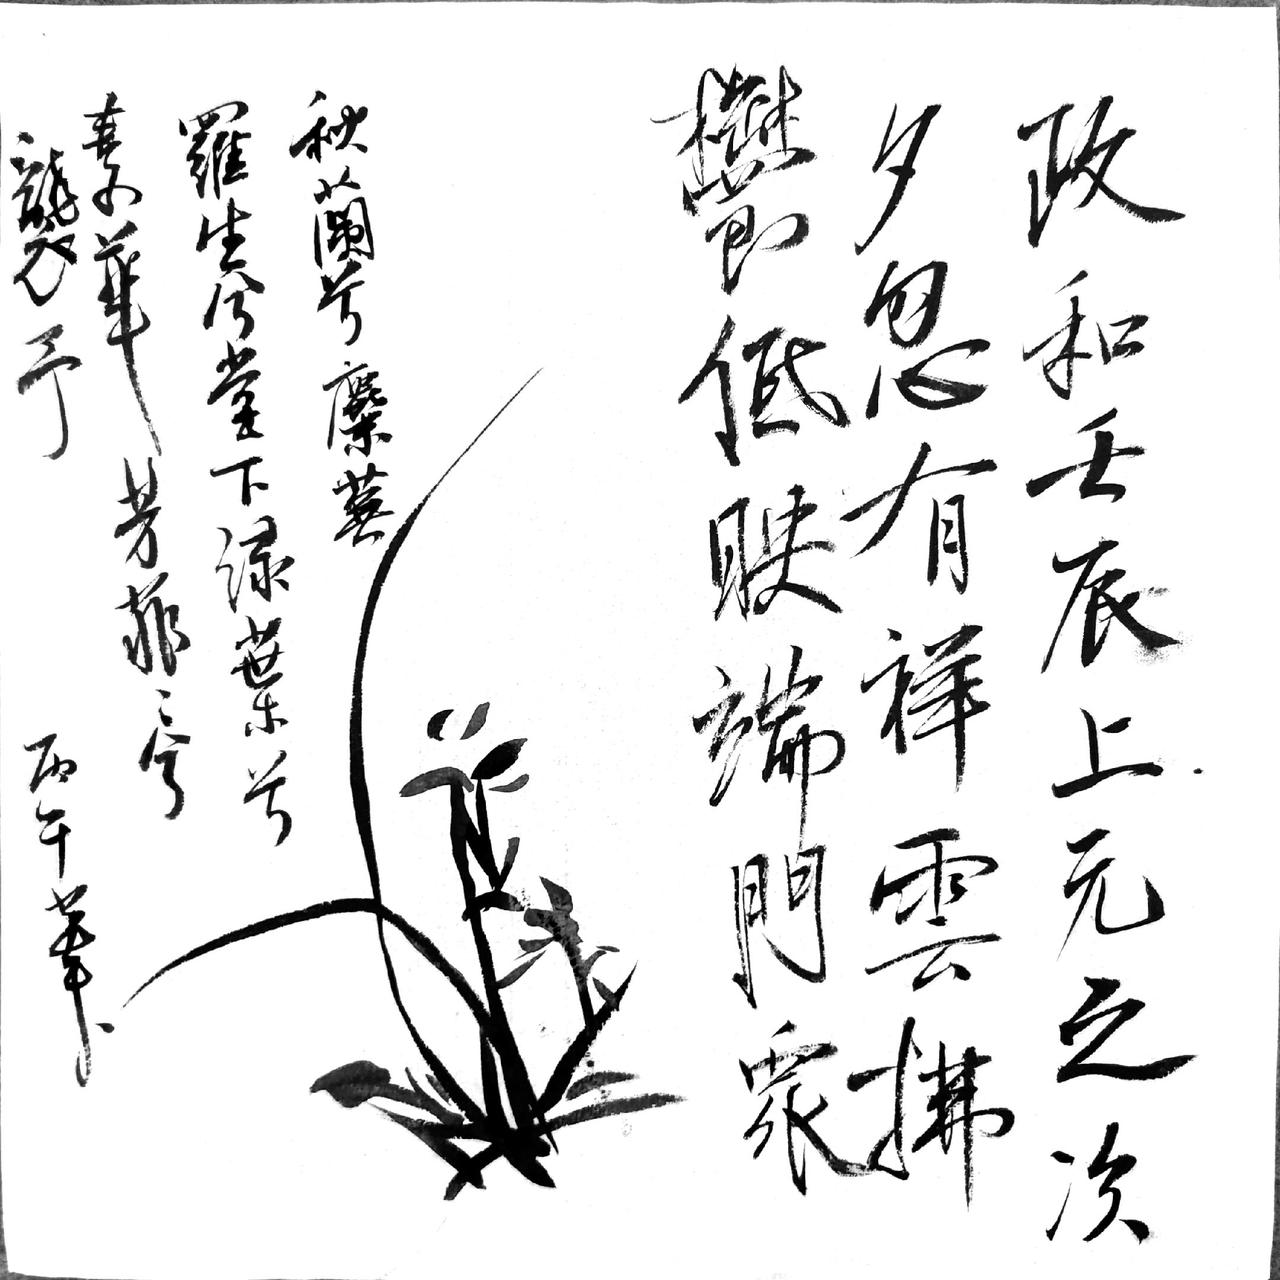 政和壬辰上元之次
夕忽有祥雲拂
欝低映端門眾
秋蘭兮麋蕪
羅生兮堂下綠葉兮
素華芳菲〻兮
襲予
丙午